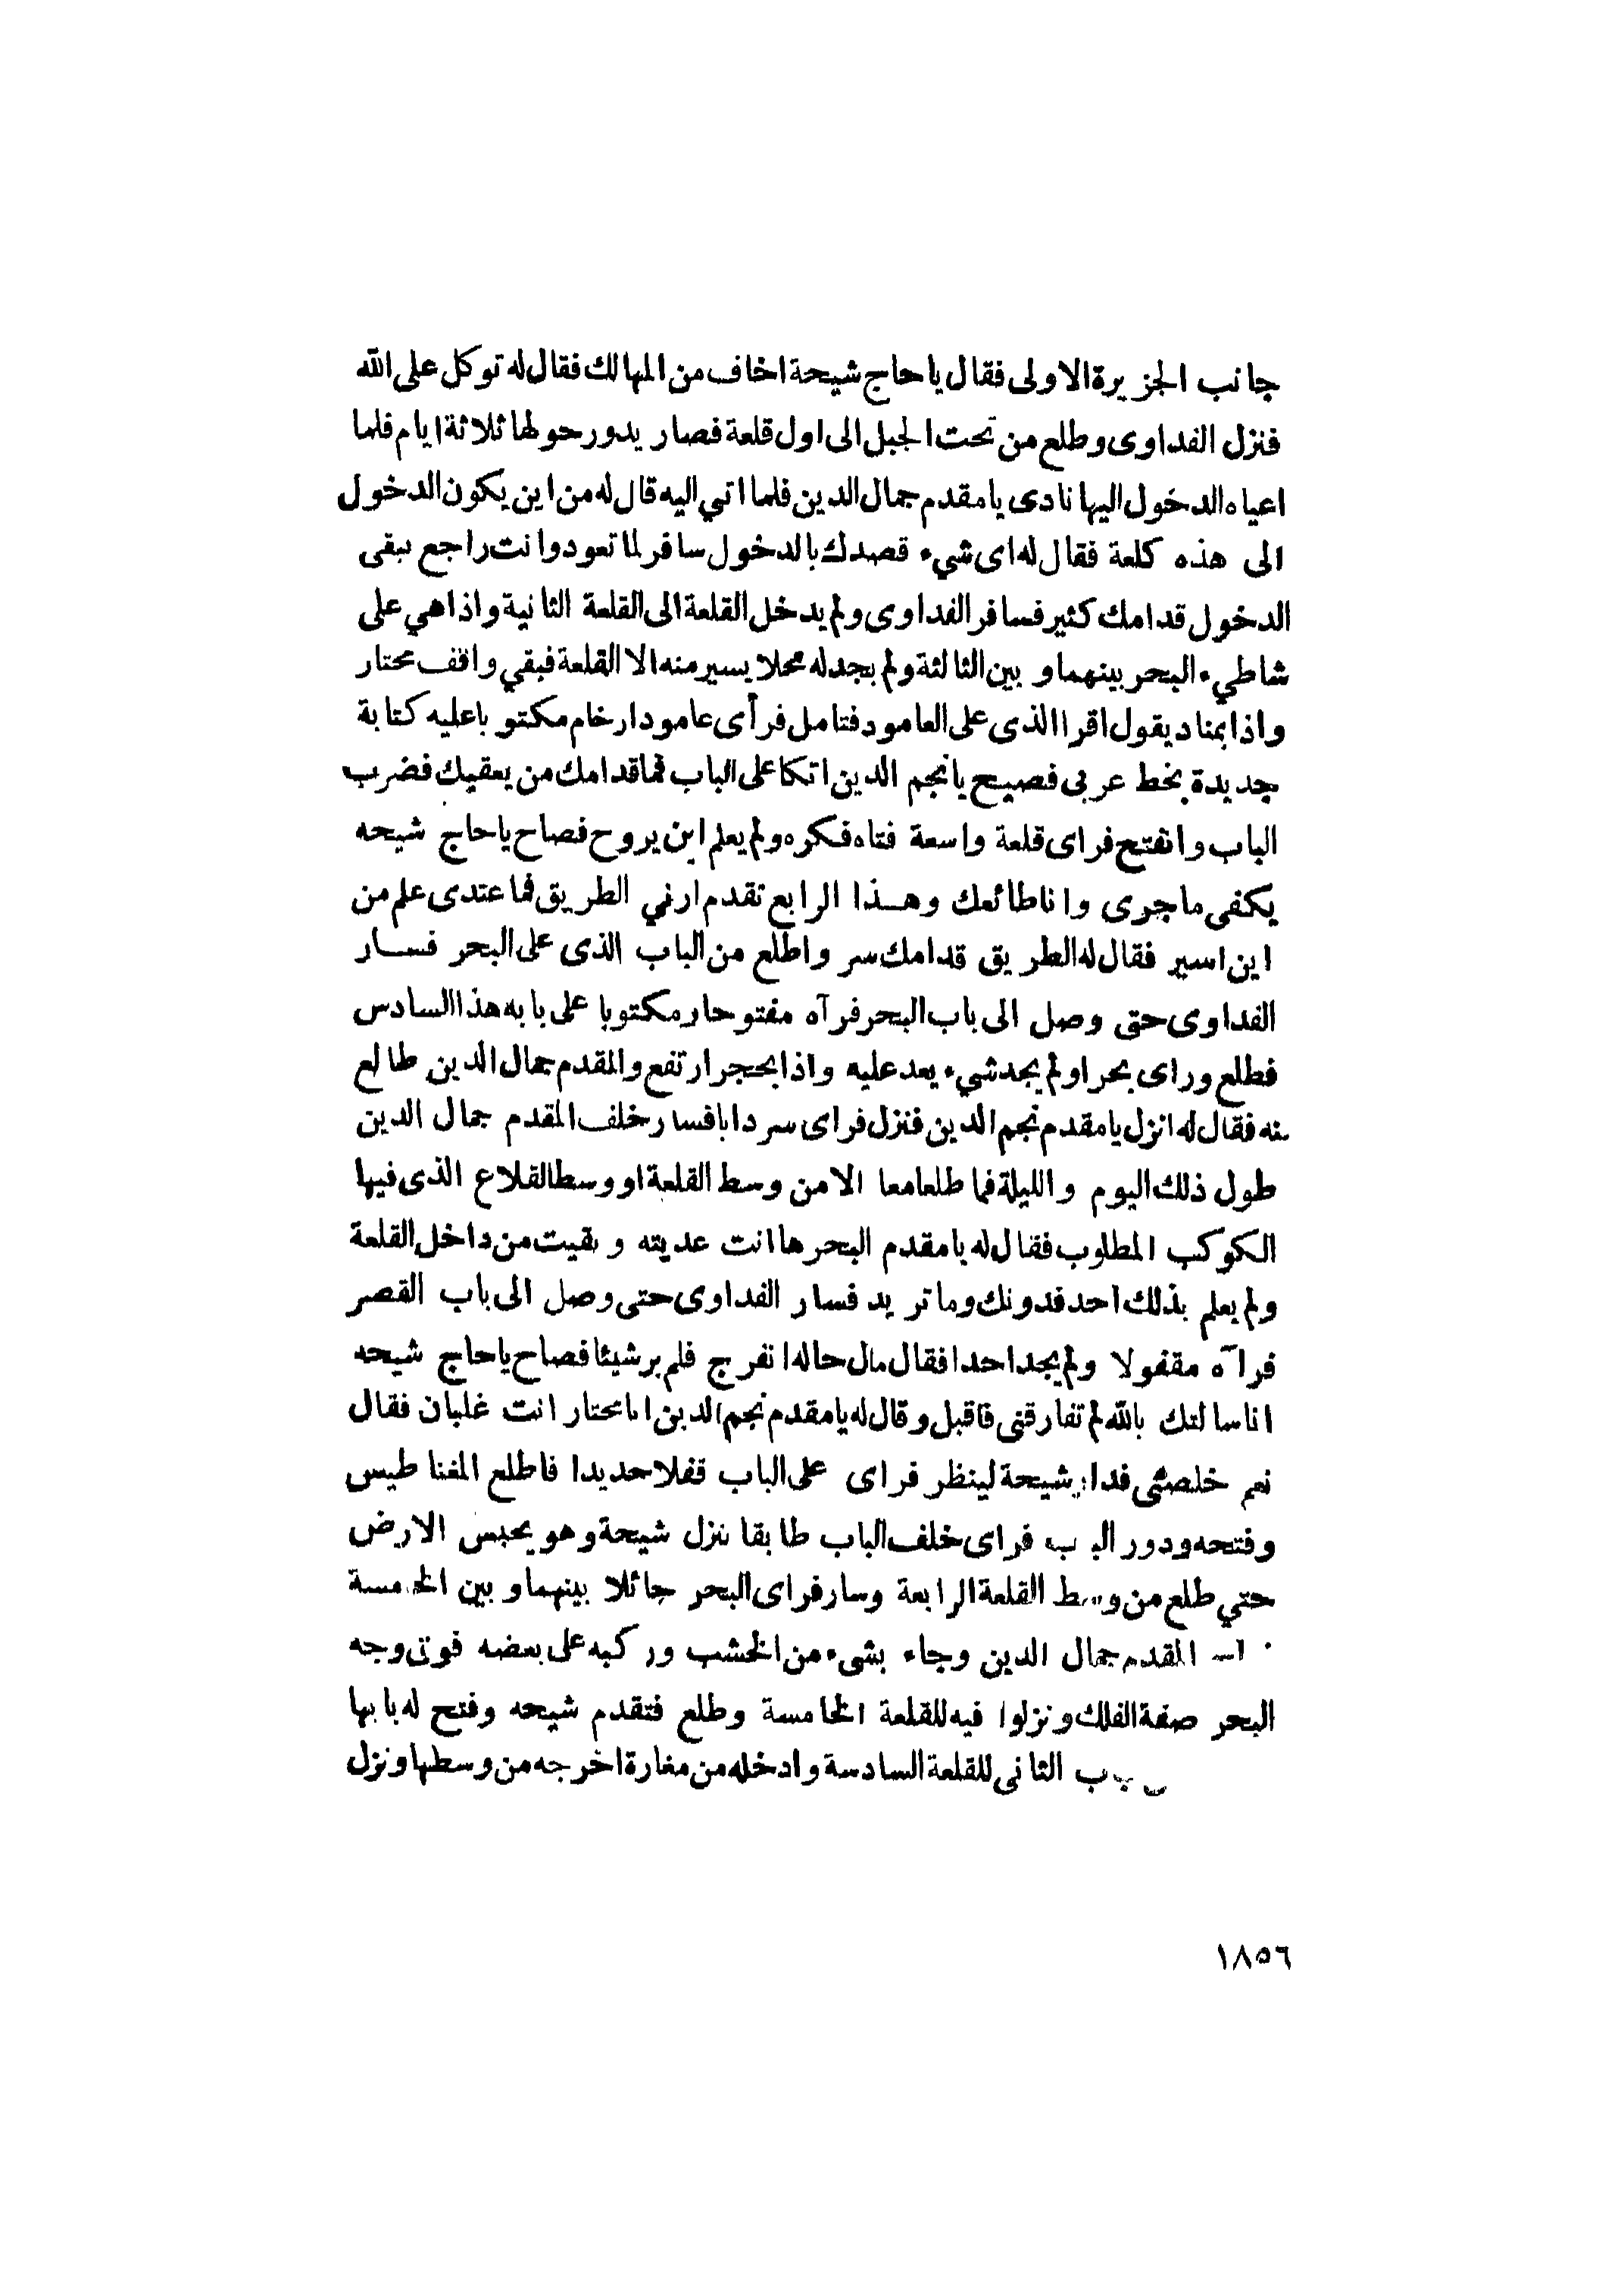 جانب الجزيرة الاولى فقال يا حاج شيحة اخاف من المهالك فقال له توكل على الله
فنزل الفداوى وطلع من تحت الجبل الى اول قلعة فصار يدور حولها ثلاثة ايام فلما
اعياه الدخول اليها نادى يا مقدم جمال الدين فلما اتي اليه قال له من اين يكون الدخول
الى هذه كلعة فقال له اى شيء قصدك بالدخول سافر لما تعود وانت راجع يبقى
الدخول قدامك كثير فسافر الفداوى ولم يدخل القلعة الى القلعة الثانية واذا هي على
شاطيء البحر بينهما و بين الثالثة ولم يجد له محلا يسير منه الا القلعة فبقي واقف محتار
واذا بمناد يقول اقرا الذى على العامود فتامل فرأى عامودا رخام مكتوبا عليه كتابة
جديدة بخط عربى فصيح يا نجم الدين اتكا على الباب فما قدامك من يعقيك فضرب
الباب وانفتح فراى قلعة واسعة فتاه فكره ولم يعلم اين يروح فصاح يا حاج شيحه
يكفى ما جرى وانا طائعك وهذا الرابع تقدم ارني الطريق فما عندى علم من
اين اسير فقال له الطريق قدامك سر واطلع من الباب الذى على البحر فسار
الفداوى حتى وصل الى باب البحر فرآه مفتوحا ومكتوبا على بابه هذا السادس
فطلع وراى بحرا ولم يجد شيء يعد عليه واذا بحجر ارتفع والمقدم جمال الدين طالع
منه فقال له انزل يا مقدم نجم الدين فنزل فراى سردابا فسار خلف المقدم جمال الدين
طول ذلك اليوم والليلة فما طلعا معا الا من وسط القلعة او وسط القلاع الذى فيها
الكوكب المطلوب فقال له يا مقدم البحر ها انت عديته وبقيت من داخل القلعة
ولم يعلم بذلك احد فدونك وما تريد فسار الفداوى حتى وصل الى باب القصر
فرآه مقفولا ولم يجد احدا فقال مال حاله انفرج فلم ير شيئا فصاح يا حاج شيحه
انا سالتك بالله لم تفارقنى فاقبل وقال له يا مقدم نجم الدين انا محتار انت غلبان فقال
نعم خلصنى فدار شيحة لينظر فراى على الباب قفلا حديدا فاطلع المغناطيس
وفتحه ودور الباب فراى خلف الباب طابقا نزل شيحة وهو يحبس الارض
حتي طلع من وسط القلعة الرابعة وسار فراى البحر جائلا بينهما و بين الخامسة
المقدم جمال الدين وجاء بشىء من الخشب وركبه على بعضه فوق وجه
البحر صفة الفلك ونزلوا فيه للقلعة الخامسة وطلع فتقدم شيحه وفتح له بابها
الثانى للقلعة السادسة وادخله من مغارة اخرجه من وسطها ونزل
١٨٥٦